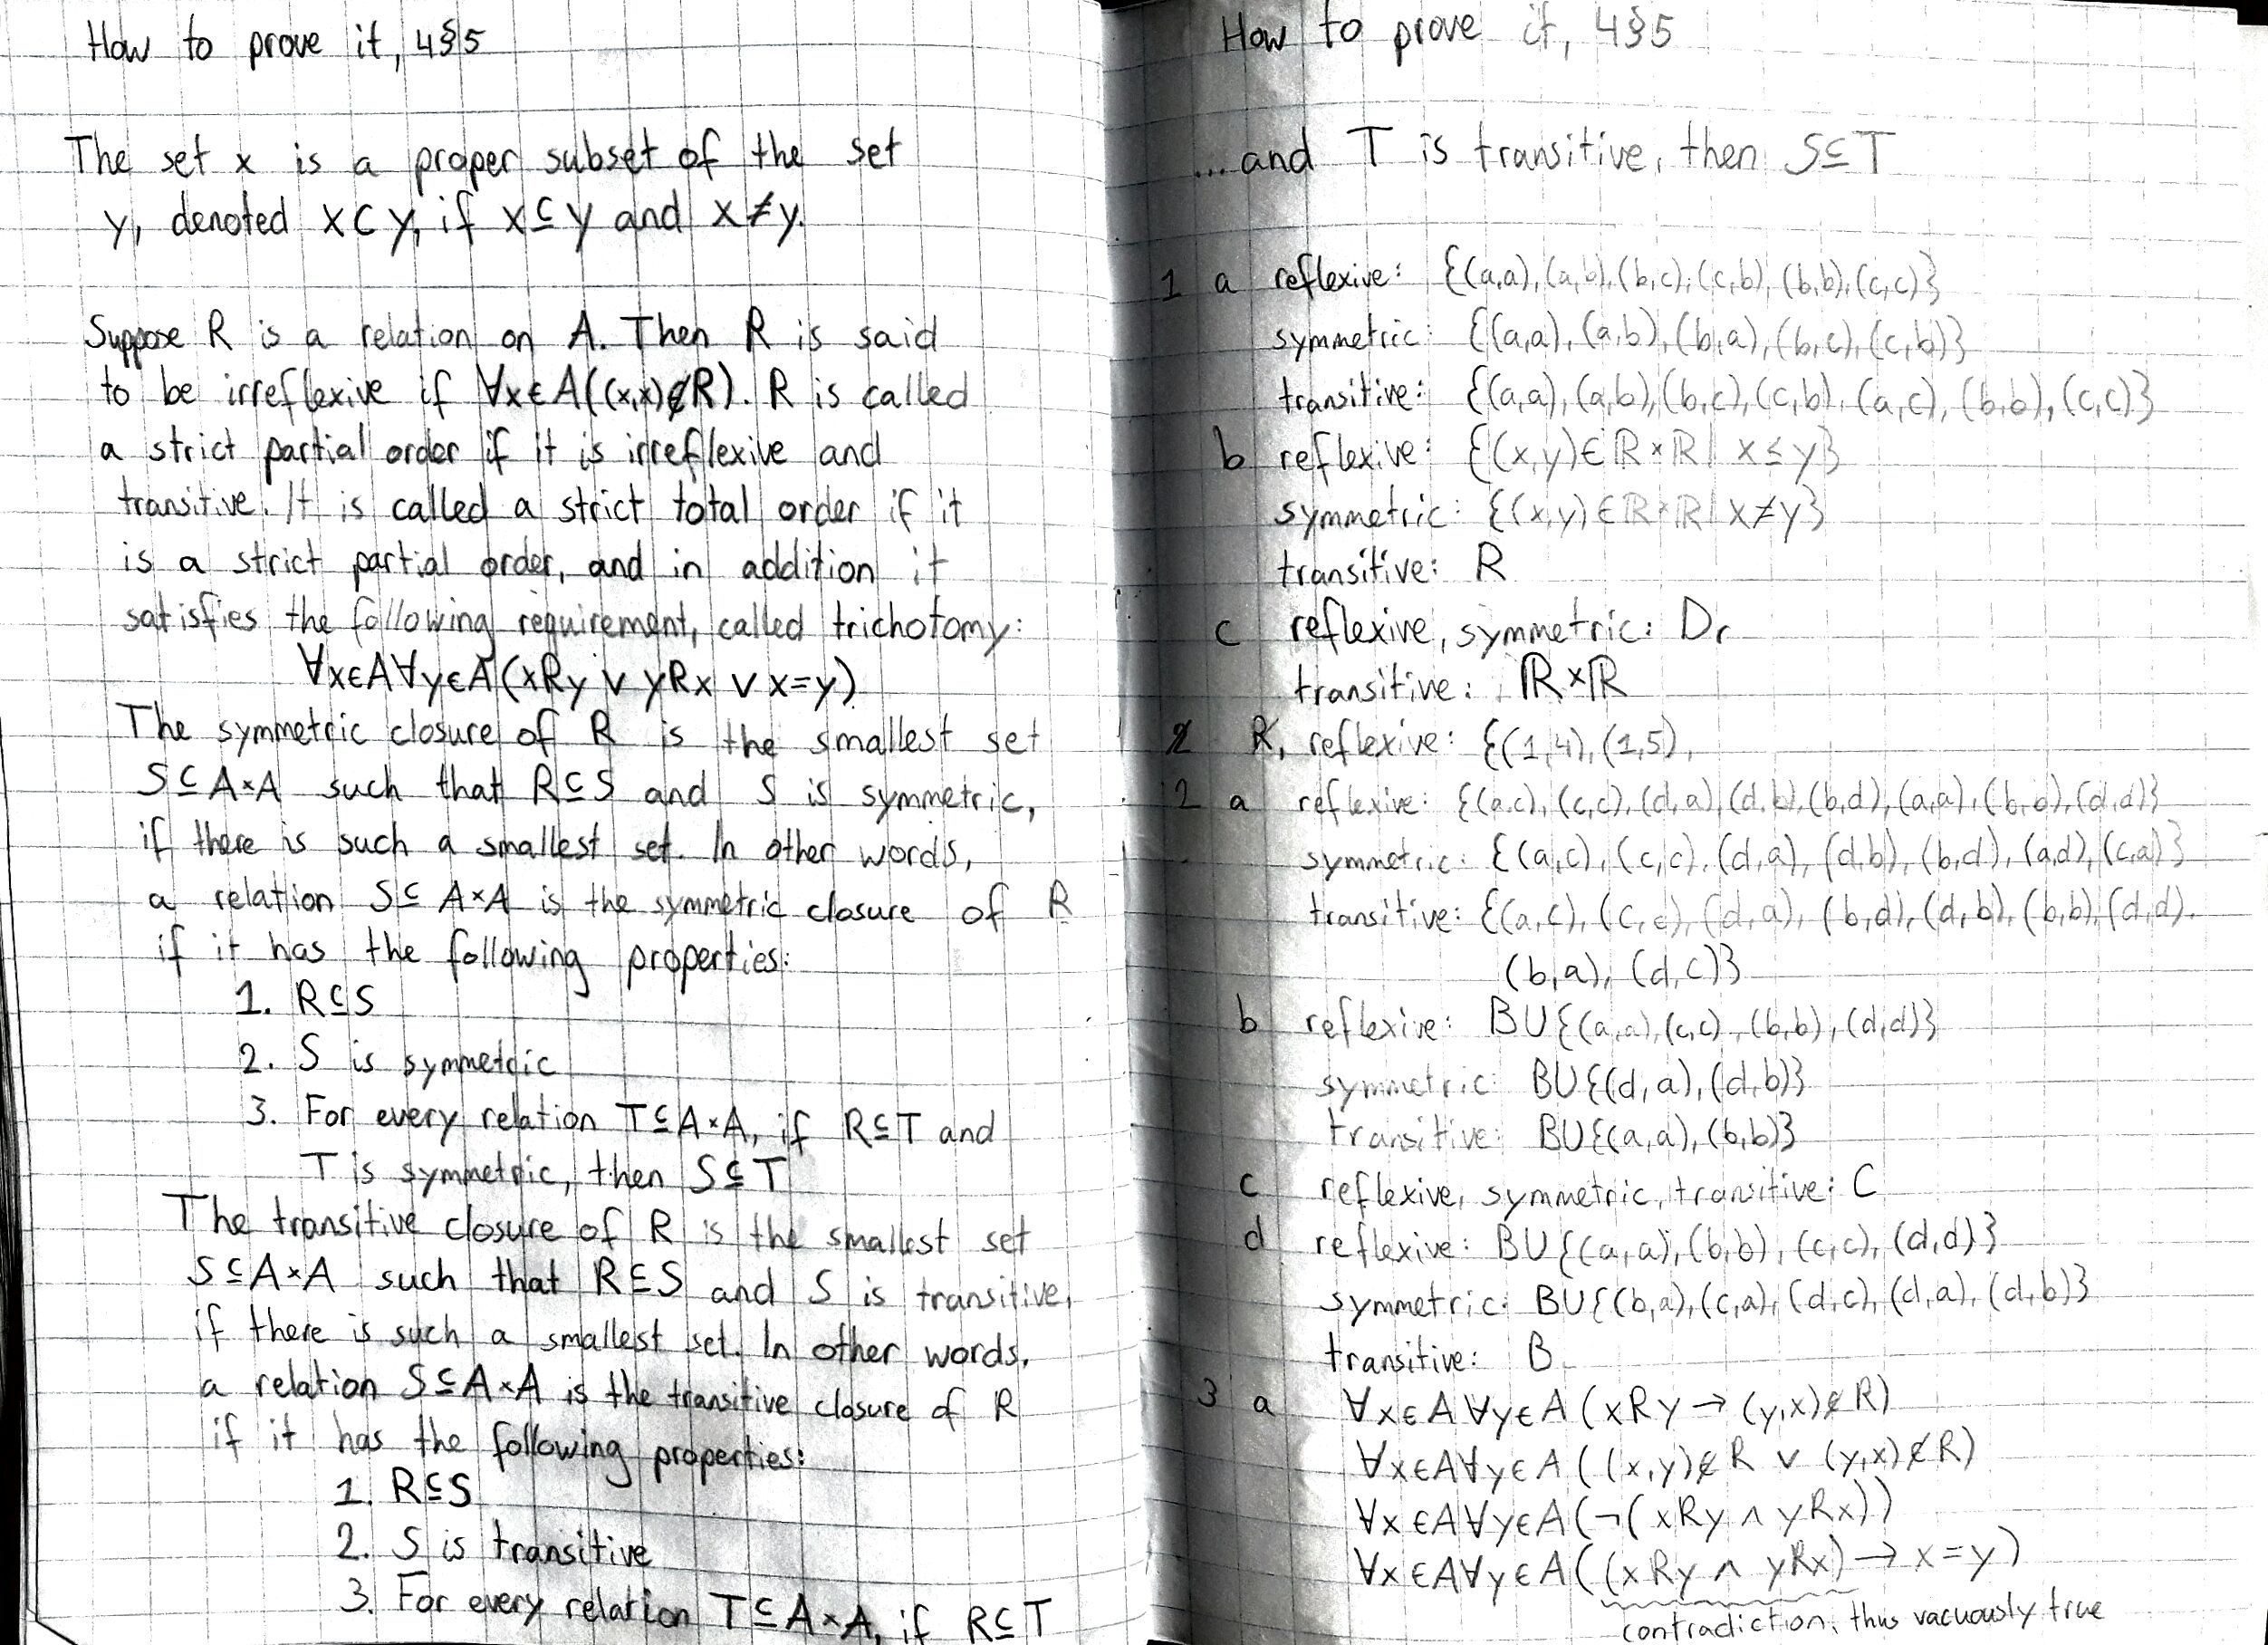 How to prove it, 4§5
The set x is a proper subset of the set
y, denoted x⊂y, if x⊆y and x≠y.
Suppose R is a relation on A. Then R is said
to be irreflexive if ∀x∈A((x,x)∉R). R is called
a strict partial order if it is irreflexive and
transitive. It is called a strict total order if it
is a strict partial order, and in addition it
satisfies the following requirement, called trichotomy:
∀x∈A∀y∈A(xRy ∨ yRx ∨ x=y)
The symmetric closure of R is the smallest set
S⊆A×A such that R⊆S and S is symmetric,
if there is such a smallest set. In other words,
a relation S⊆A×A is the symmetric closure of R
if it has the following properties:
1. R⊆S
2. S is symmetric
3. For every relation T⊆A×A, if R⊆T and
T is symmetric, then S⊆T
The transitive closure of R is the smallest set
S⊆A×A such that R⊆S and S is transitive,
if there is such a smallest set. In other words,
a relation S⊆A×A is the transitive closure of R
if it has the following properties:
1. R⊆S
2. S is transitive
3. For every relation T⊆A×A, if R⊆T
How to prove it, 4§5
...and T is transitive, then S⊆T
1 a reflexive: {(a,a),(a,b),(b,c),(c,b),(b,b),(c,c)}
symmetric: {(a,a),(a,b),(b,a),(b,c),(c,b)}
transitive: {(a,a),(a,b),(b,c),(c,b),(a,c),(b,b),(c,c)}
b reflexive: {(x,y)∈ℝ×ℝ| x≤y}
symmetric: {(x,y)∈ℝ×ℝ| x≠y}
transitive: R
c reflexive, symmetric: Dr
transitive: ℝ×ℝ
2 R, reflexive: {(1,4),(1,5),
2 a reflexive: {(a,c),(c,c),(d,a),(d,b),(b,d),(a,a),(b,b),(d,d)}
symmetric: {(a,c),(c,c),(d,a),(d,b),(b,d),(a,d),(c,a)}
transitive: {(a,c),(c,c),(d,a),(b,d),(d,b),(b,b),(d,d),
(b,a),(d,c)}
b reflexive: B∪{(a,a),(c,c),(b,b),(d,d)}
symmetric: B∪{(d,a),(d,b)}
transitive: B∪{(a,a),(b,b)}
c reflexive, symmetric, transitive: C
d reflexive: B∪{(a,a),(b,b),(c,c),(d,d)}
symmetric: B∪{(b,a),(c,a),(d,c),(d,a),(d,b)}
transitive: B
3 a ∀x∈A∀y∈A(xRy→(y,x)∉R)
∀x∈A∀y∈A((x,y)∉R ∨ (y,x)∉R)
∀x∈A∀y∈A(¬(xRy ∧ yRx))
∀x∈A∀y∈A((xRy ∧ yRx)→x=y)
contradiction, thus vacuously true